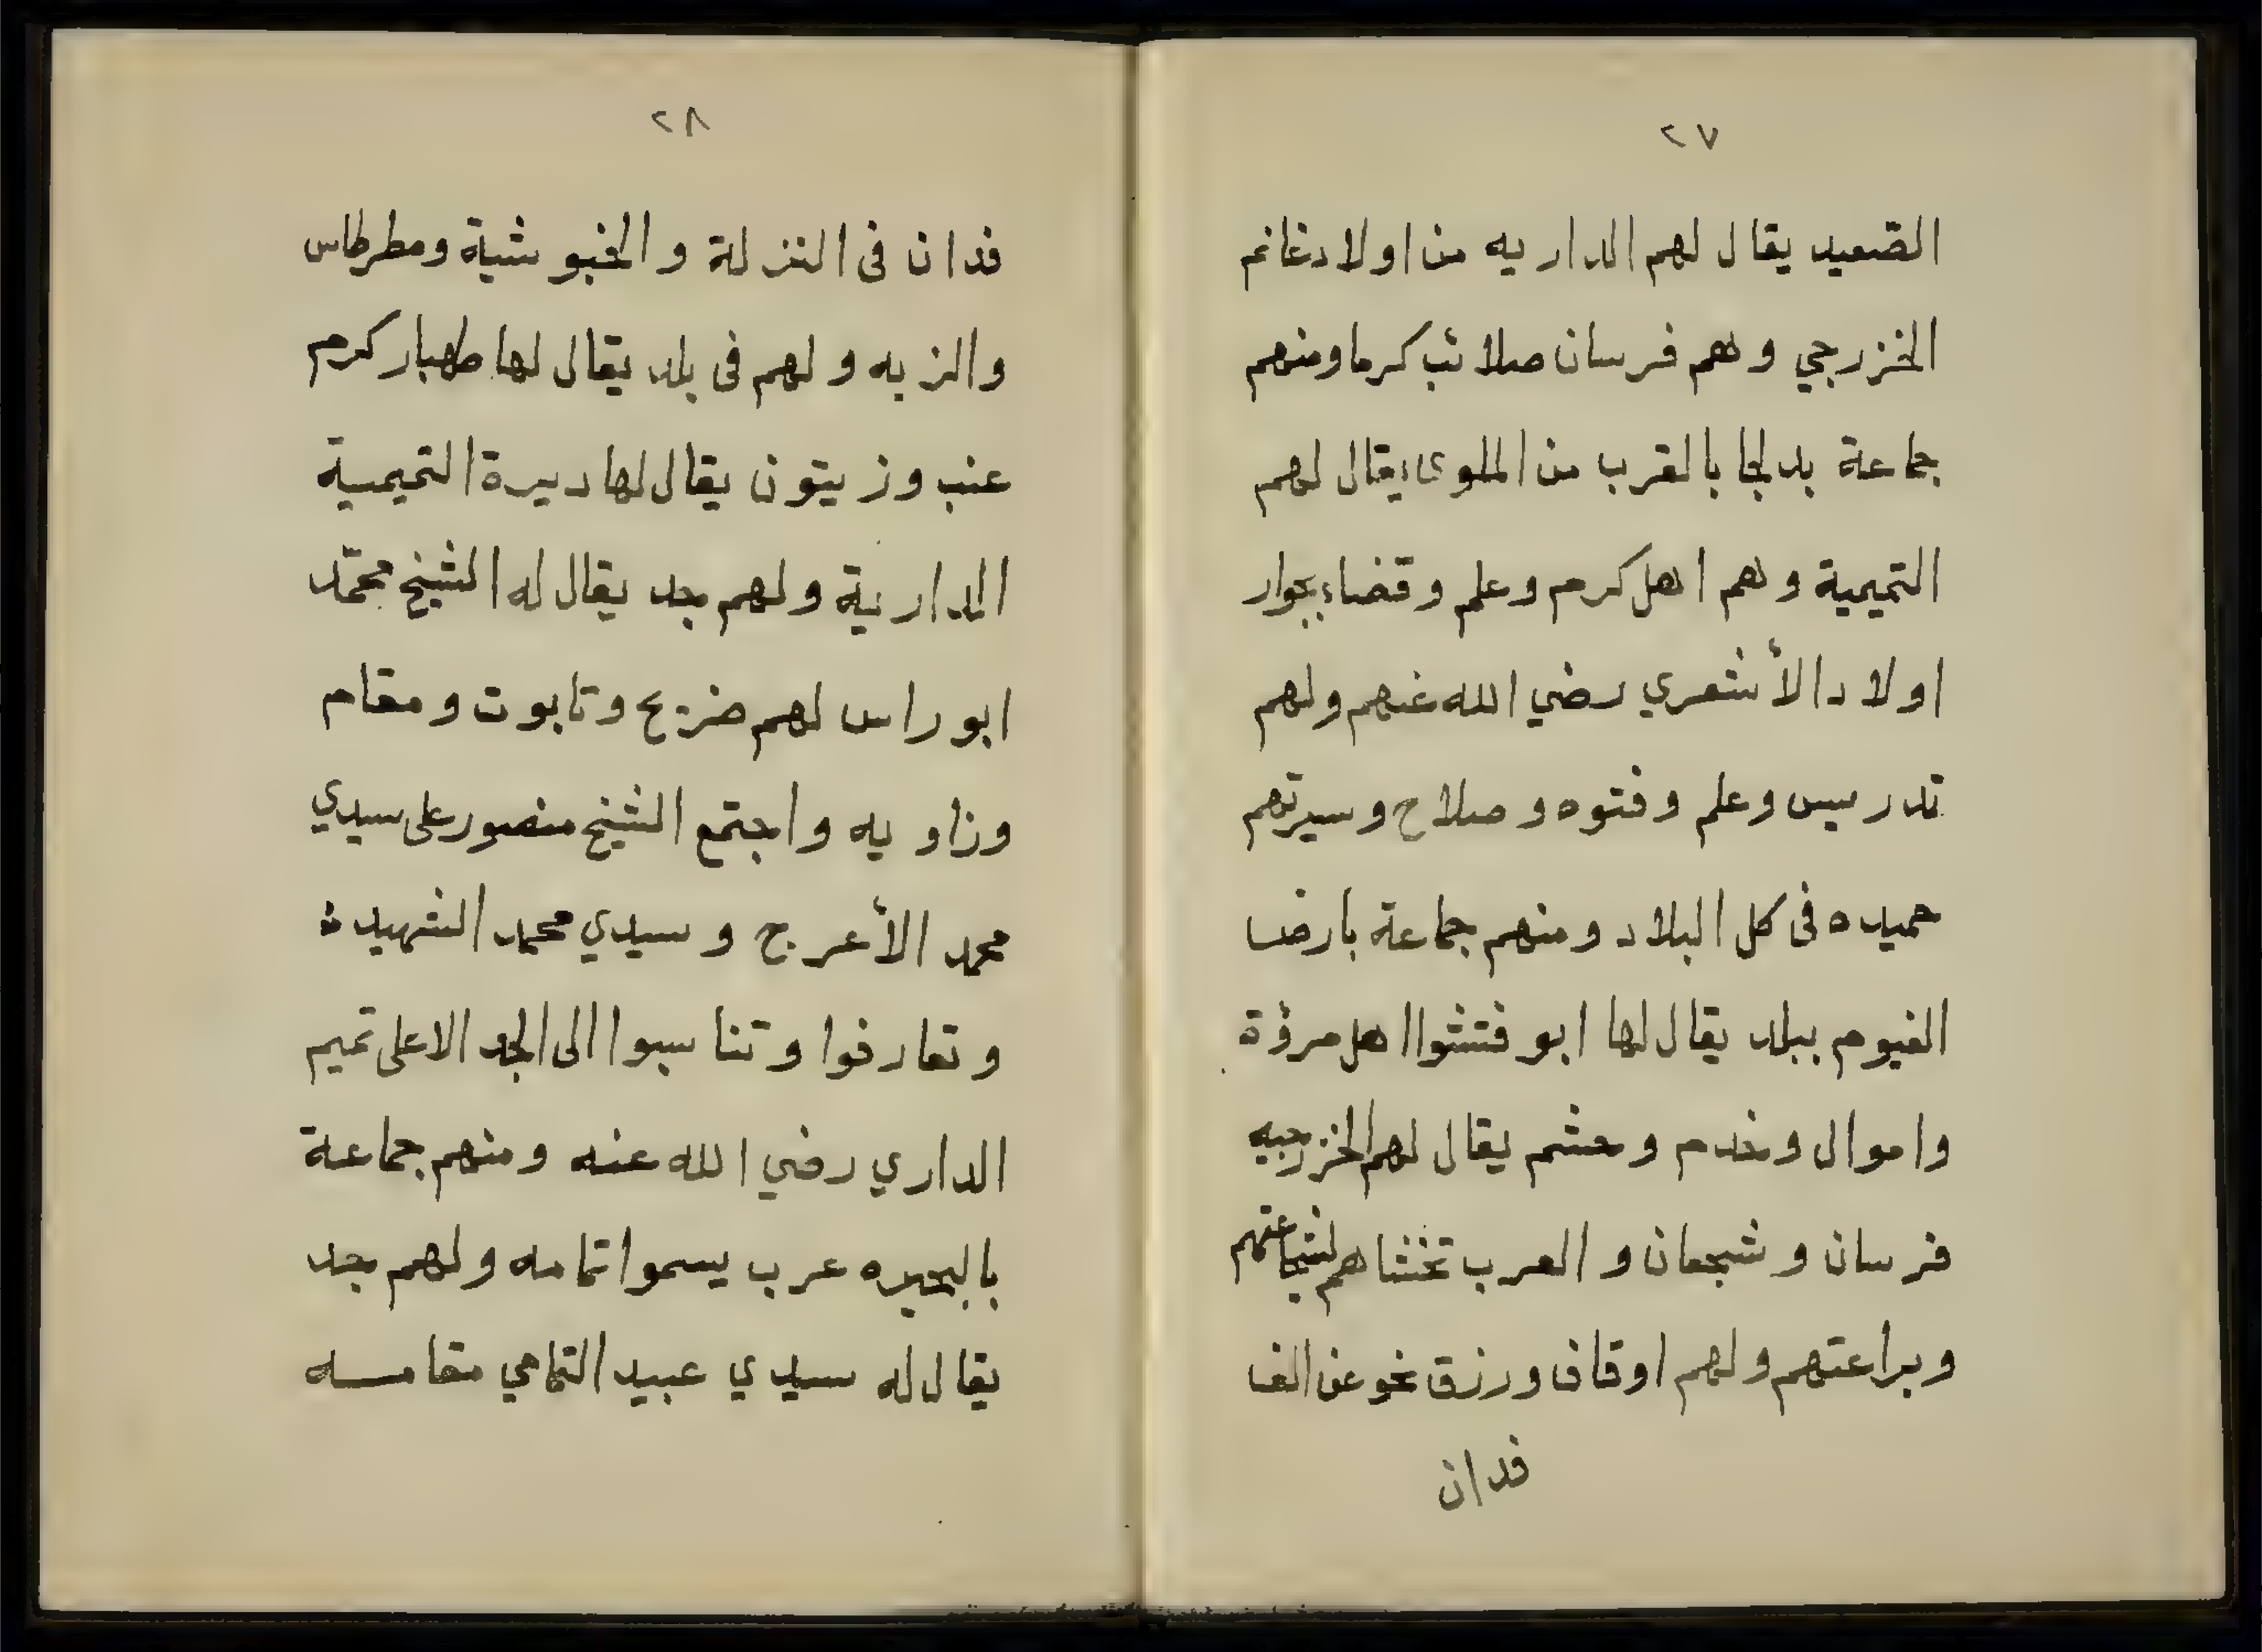 ٢٧
الصّعيد يقال لهم الداريه من اولاد غانم
الخزرجي وهم فرسان صلائب كرما ومنهم
جماعة بدلجا بالقرب من الملوى يقال لهم
التميمية وهم اهل كرم وعلم وقضاء بجوار
اولاد الأشعري رضي الله عنهم ولهم
تدريس وعلم وفتوه وصلاح وسيرتهم
حميده فى كل البلاد ومنهم جماعة بارض
الفيوم ببلد يقال لها ابو فتشوا اهل مرؤة
واموال وخدم وحشم يقال لهم الخزرجيه
فرسان وشجعان والعرب تخشاهم لشجاعتهم
وبراعتهم ولهم اوقاف ورزق نحو عن الف
فدان
٢٨
فدان فى النزلة والخبوشية ومطرطاس
والزبه ولهم فى بلد يقال لها طهبار كرم
عنب وزيتون يقال لها ديرة التميمية
الدارية ولهم جد يقال له الشيخ محمّد
ابوراس لهم ضريح وتابوت ومقام
وزاويه واجتمع الشيخ منصور على سيدي
محمد الأعرج وسيدي محمد الشهيد
وتعارفوا وتناسبوا الى الجد الاعلى تميم
الداري رضي الله عنه ومنهم جماعة
بالبحيره عرب يسموا تمامه ولهم جد
يقال له سيدي عبيد التمامي مقامه